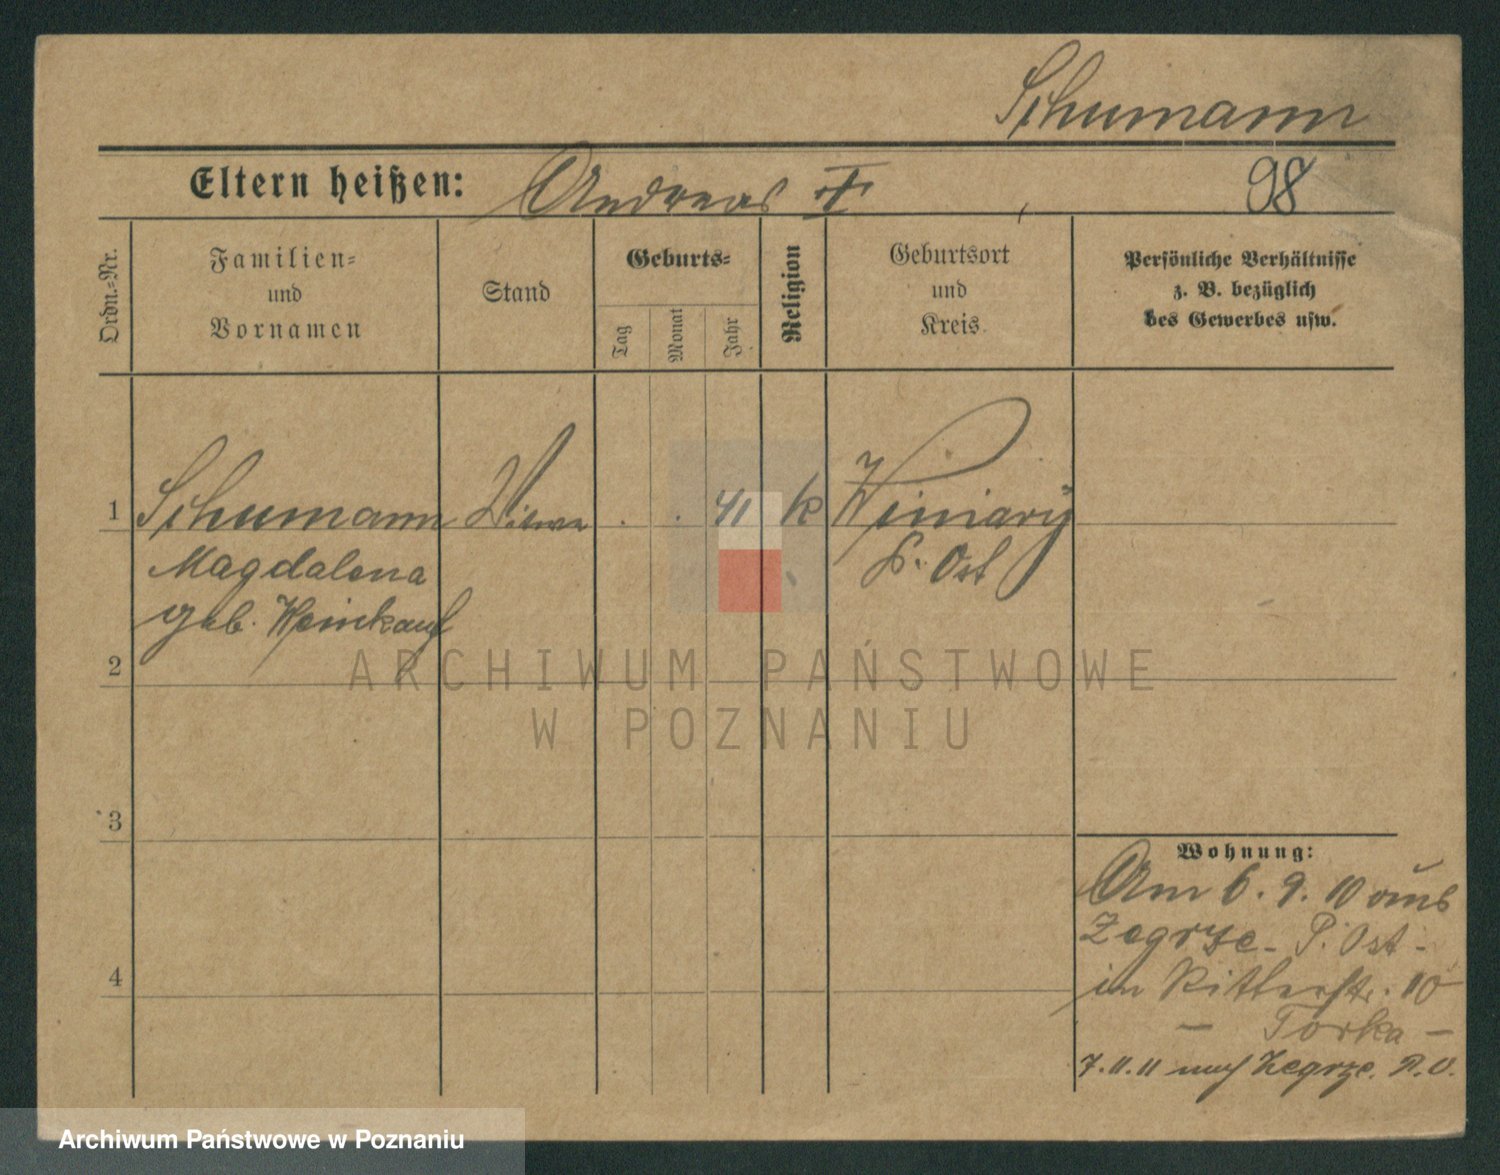 Schumann
Eltern heißen: Andreas †
98
Ordn.-Nr.
Familien-
und
Vornamen
Stand
Geburts-
Tag
Monat
Jahr
Religion
Geburtsort
und
Kreis
Persönliche Verhältnisse
z. B. bezüglich
des Gewerbes usw.
1 Schumann Witwe . . 41 k Winiary
Magdalena P. Ost
geb. Weinkauf
2
ARCHIWUM PAŃSTWOWE
W POZNANIU
3
Wohnung:
Am 6. 9. 10 aus
Zegrze - P. Ost -
in Ritterstr. 10
- Torka -
4
7.11.11 nach Zegrze. P. O.
Archiwum Państwowe w Poznaniu